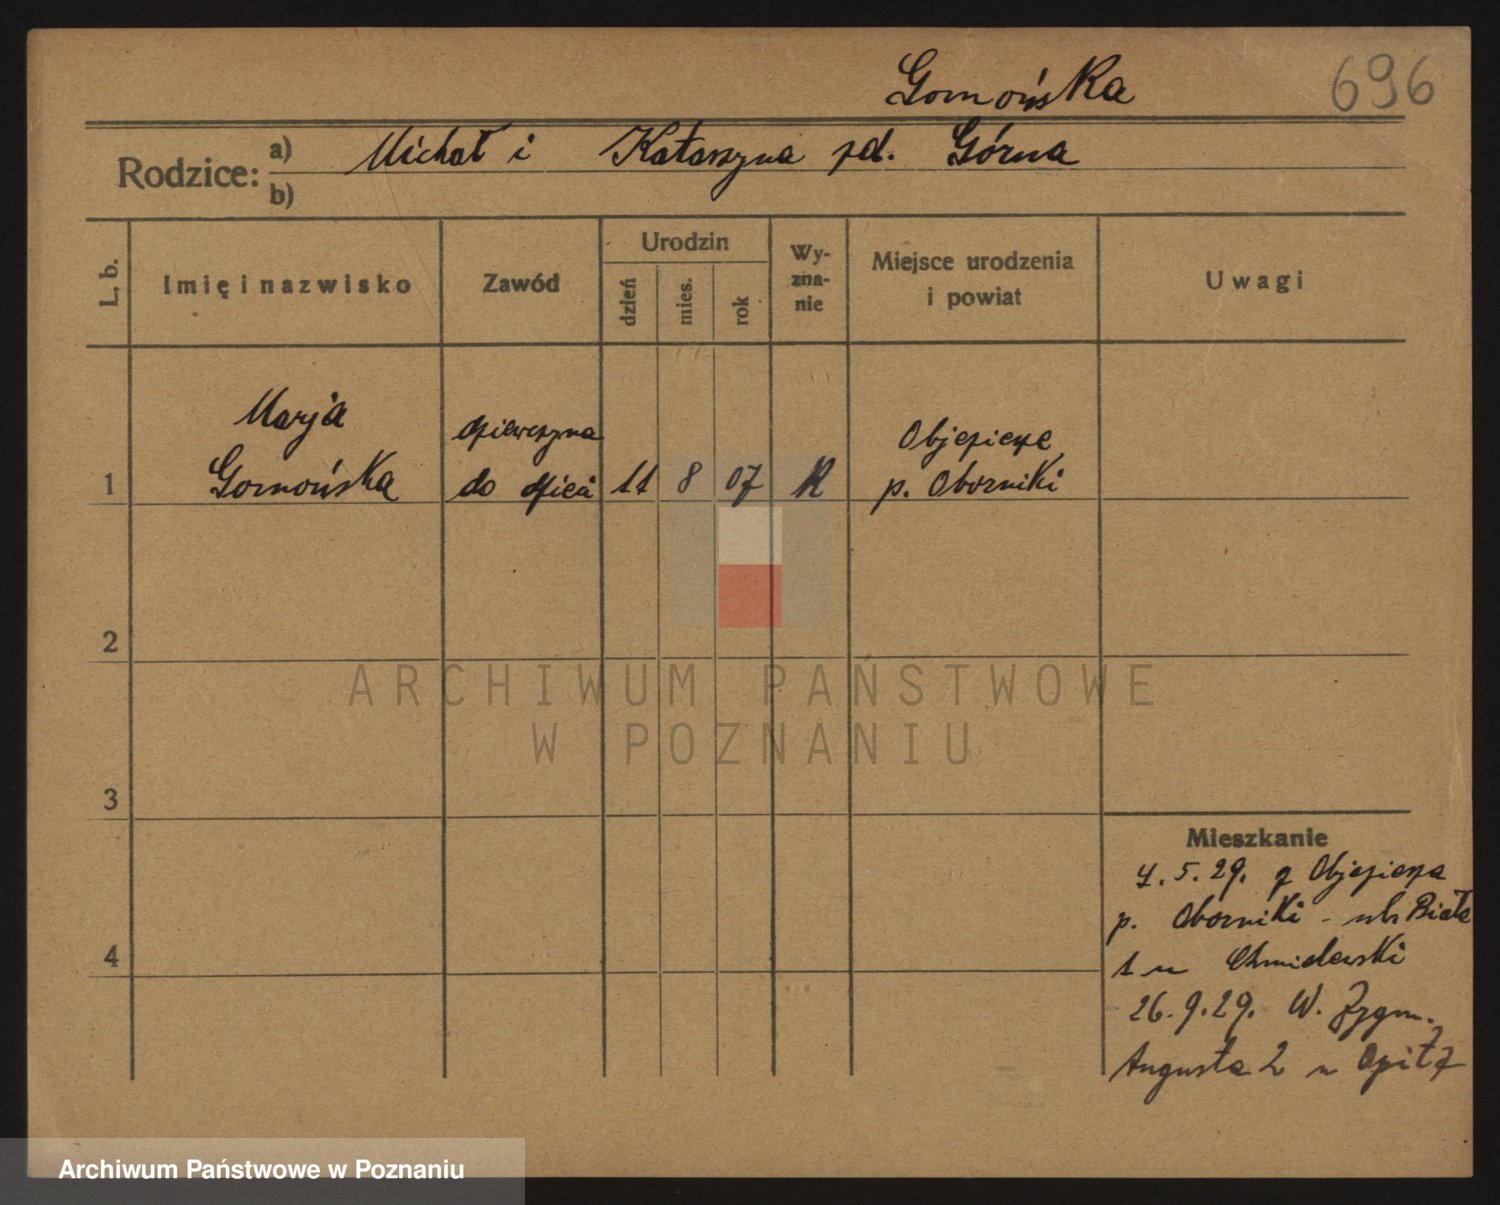 Gornońska
696
Rodzice: a) Michał i Katarzyna zd. Górna
b)
L. b. Imię i nazwisko Zawód Urodzin dzień mies. rok Wy-zna-nie Miejsce urodzenia i powiat Uwagi
Marja dziewczyna Objezierze
1 Gornońska do dzieci 11 8 07 R p. Oborniki
2
ARCHIWUM PAŃSTWOWE
W POZNANIU
3
Mieszkanie
4.5.29. z Objezierza
p. Oborniki - Biała
4
1 u Chmielewski
26.9.29. W. Zygm.
Augusta 2 u Opitz
Archiwum Państwowe w Poznaniu